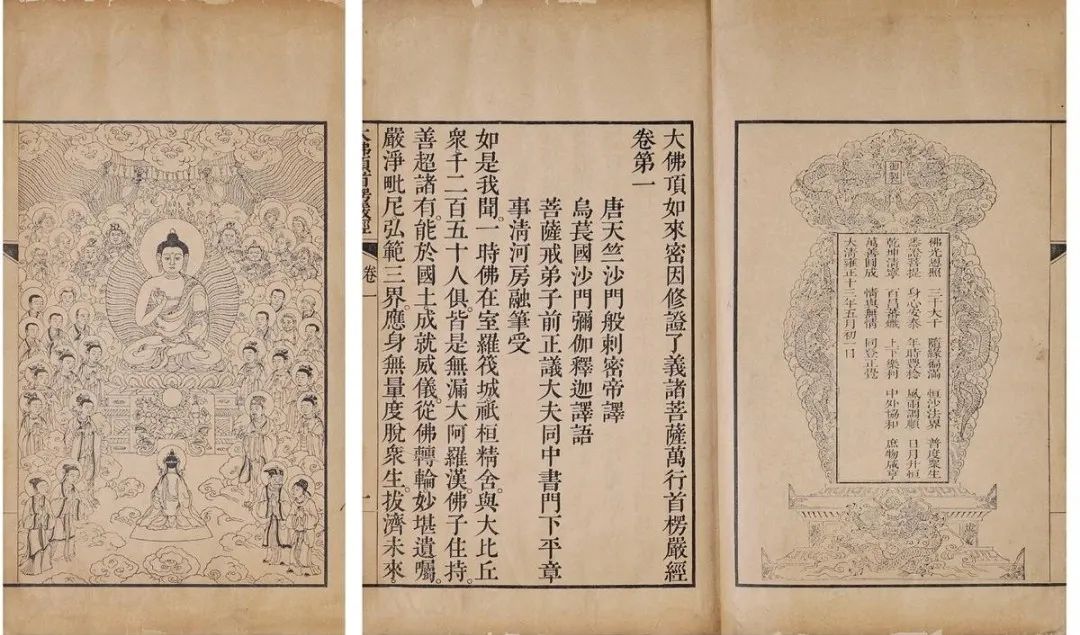 御製
佛光恩照 三千大千 隨緣福滿 恒沙法界 普度衆生
悉證菩提 身心安泰 年時豐稔 風雨調順 日月升恒
乾坤清寧 百昌蕃熾 上下樂利 中外協和 庶物咸亨
萬善圓成 情與無情 同登正覺
大清雍正十三年五月初一日
大佛頂如來密因修證了義諸菩薩萬行首楞嚴經
卷第一
唐天竺沙門般剌密帝譯
烏萇國沙門彌伽釋迦譯語
菩薩戒弟子前正議大夫同中書門下平章
事清河房融筆受
如是我聞。一時佛在室羅筏城祇桓精舍。與大比丘
衆千二百五十人俱。皆是無漏大阿羅漢。佛子住持。
善超諸有。能於國土成就威儀。從佛轉輪妙堪遺囑。
嚴淨毗尼弘範三界。應身無量度脫衆生。拔濟未來。
大佛頂首楞嚴經 卷一 一